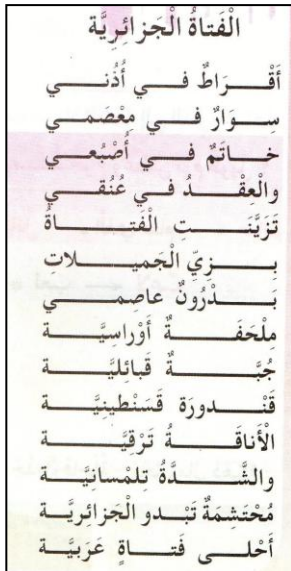 الْفَتاةُ الْجَزائِرِيَّة
أَقْراطٌ في أُذُني
سِوَارٌ في مِعْصَمي
خاتَمٌ في أُصْبُعي
والْعِقْدُ في عُنُقي
تَزَيَّنَتِ الْفَتاةُ
بِزِيِّ الْجَميلاتِ
بَدْرُونٌ عاصِمي
مِلْحَفَةٌ أَوْراسِيَّة
جُبَّةٌ قَبائِليَّة
قَنْدورَة قَسَنْطينِيَّة
الْأَناقَةُ تَرقِيَّة
والشَّدَّةُ تِلِمْسانِيَّة
مُحْتَشِمَةٌ تَبْدو الْجَزائِرِيَّة
أَحْلى فَتاةٍ عَرَبِيَّة